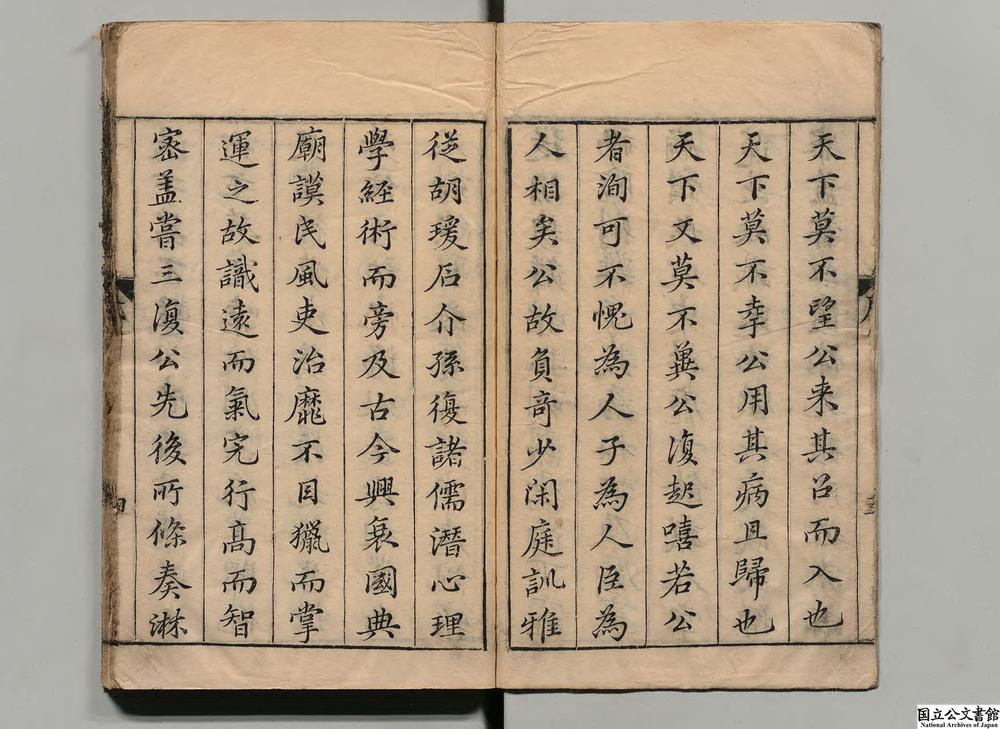 天下莫不望公来其召而入也
天下莫不幸公用其病且歸也
天下又莫不冀公復起嘻若公
者洵可不愧為人子為人臣為
人相矣公故負奇少閑庭訓雅
從胡瑗石介孫復諸儒潛心理
學經術而旁及古今興衰國典
廟謨民風吏治靡不目獵而掌
運之故識遠而氣完行髙而智
宻盖嘗三復公先後所條奏淋
国立公文書館
National Archives of Japan